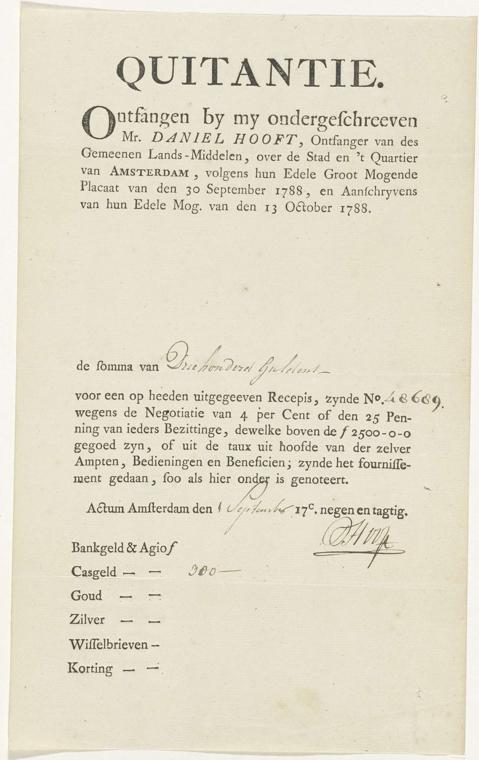 QUITANTIE.
Ontfangen by my ondergeſchreeven
Mr. DANIEL HOOFT, Ontfanger van des
Gemeenen Lands-Middelen, over de Stad en 't Quartier
van AMSTERDAM, volgens hun Edele Groot Mogende
Placaat van den 30 September 1788, en Aanſchryvens
van hun Edele Mog. van den 13 October 1788.
de ſomma van Driehonderd Guldens
voor een op heeden uitgegeeven Recepis, zynde No. 48689.
wegens de Negotiatie van 4 per Cent of den 25 Pen-
ning van ieders Bezittinge, dewelke boven de ƒ 2500-0-0
gegoed zyn, of uit de taux uit hoofde van der zelver
Ampten, Bedieningen en Beneficien; zynde het fourniſſe-
ment gedaan, ſoo als hier onder is genoteert.
Actum Amſterdam den 1 September 17c. negen en tagtig.
D. Hooft
Bankgeld & Agio ƒ
Casgeld — — 300 —
Goud — —
Zilver — —
Wiſſelbrieven —
Korting — —